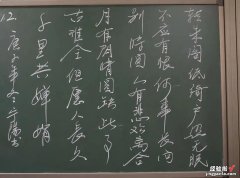 转朱阁低绮户照无眠
不应有恨何事长向
别时圆人有悲欢离合
月有阴晴圆缺此事
古难全但愿人长久
千里共婵娟
庚子年冬
12.